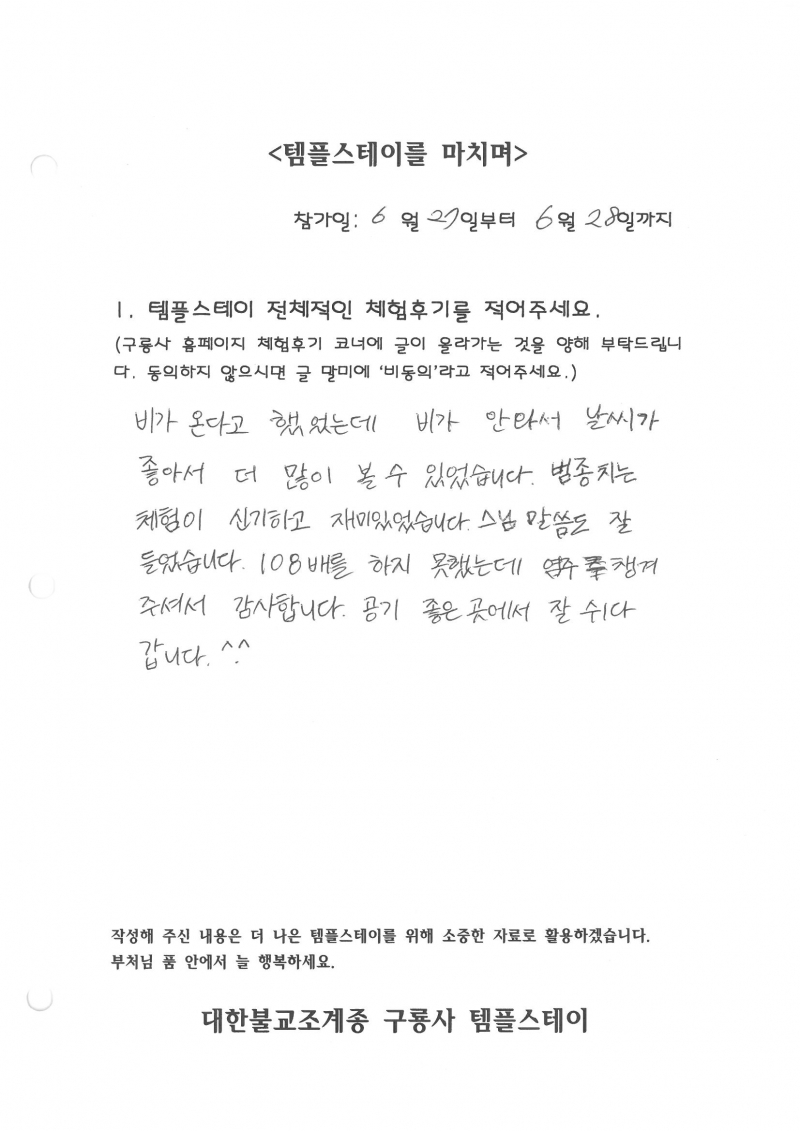 <템플스테이를 마치며>
참가일: 6 월 27일부터 6월 28일까지
1. 템플스테이 전체적인 체험후기를 적어주세요.
(구룡사 홈페이지 체험후기 코너에 글이 올라가는 것을 양해 부탁드립니
다. 동의하지 않으시면 글 말미에 '비동의'라고 적어주세요.)
비가 온다고 했었는데 비가 안와서 날씨가
좋아서 더 많이 볼 수 있었습니다. 범종치는
체험이 신기하고 재미있었습니다. 스님 말씀도 잘
들었습니다. 108배를 하지 못했는데 염주 챙겨
주셔서 감사합니다. 공기 좋은 곳에서 잘 쉬다
갑니다. ^.^
작성해 주신 내용은 더 나은 템플스테이를 위해 소중한 자료로 활용하겠습니다.
부처님 품 안에서 늘 행복하세요.
대한불교조계종 구룡사 템플스테이